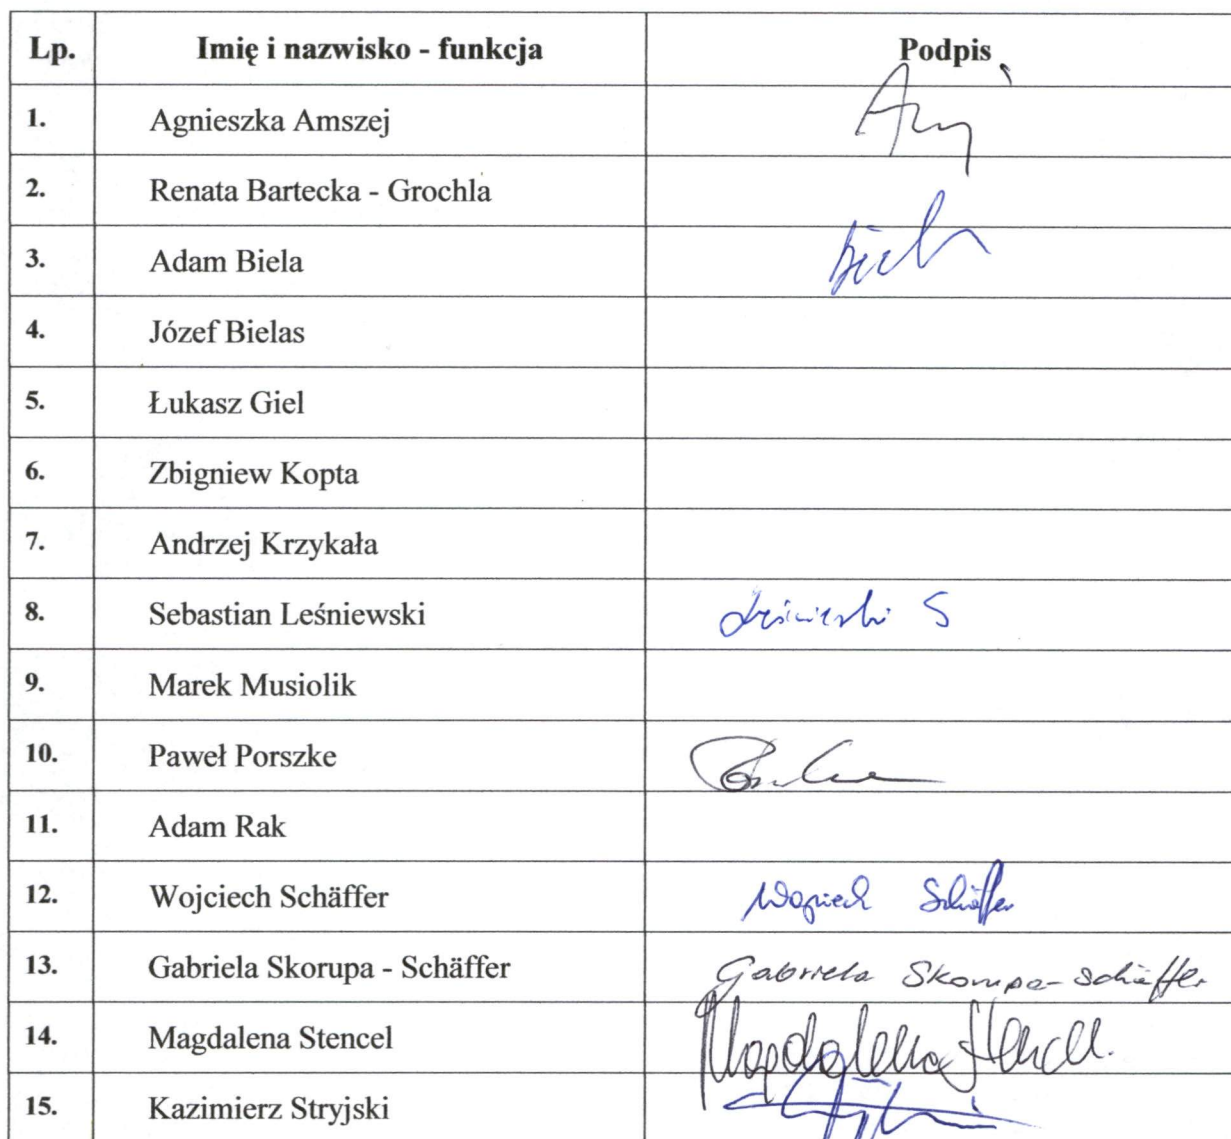 Lp. Imię i nazwisko - funkcja Podpis
1. Agnieszka Amszej
2. Renata Bartecka - Grochla
3. Adam Biela
4. Józef Bielas
5. Łukasz Giel
6. Zbigniew Kopta
7. Andrzej Krzykała
8. Sebastian Leśniewski Leśniewski S
9. Marek Musiolik
10. Paweł Porszke
11. Adam Rak
12. Wojciech Schäffer Wojciech Schäffer
13. Gabriela Skorupa - Schäffer Gabriela Skorupa-Schäffer
14. Magdalena Stencel Magdalena Stencel
15. Kazimierz Stryjski